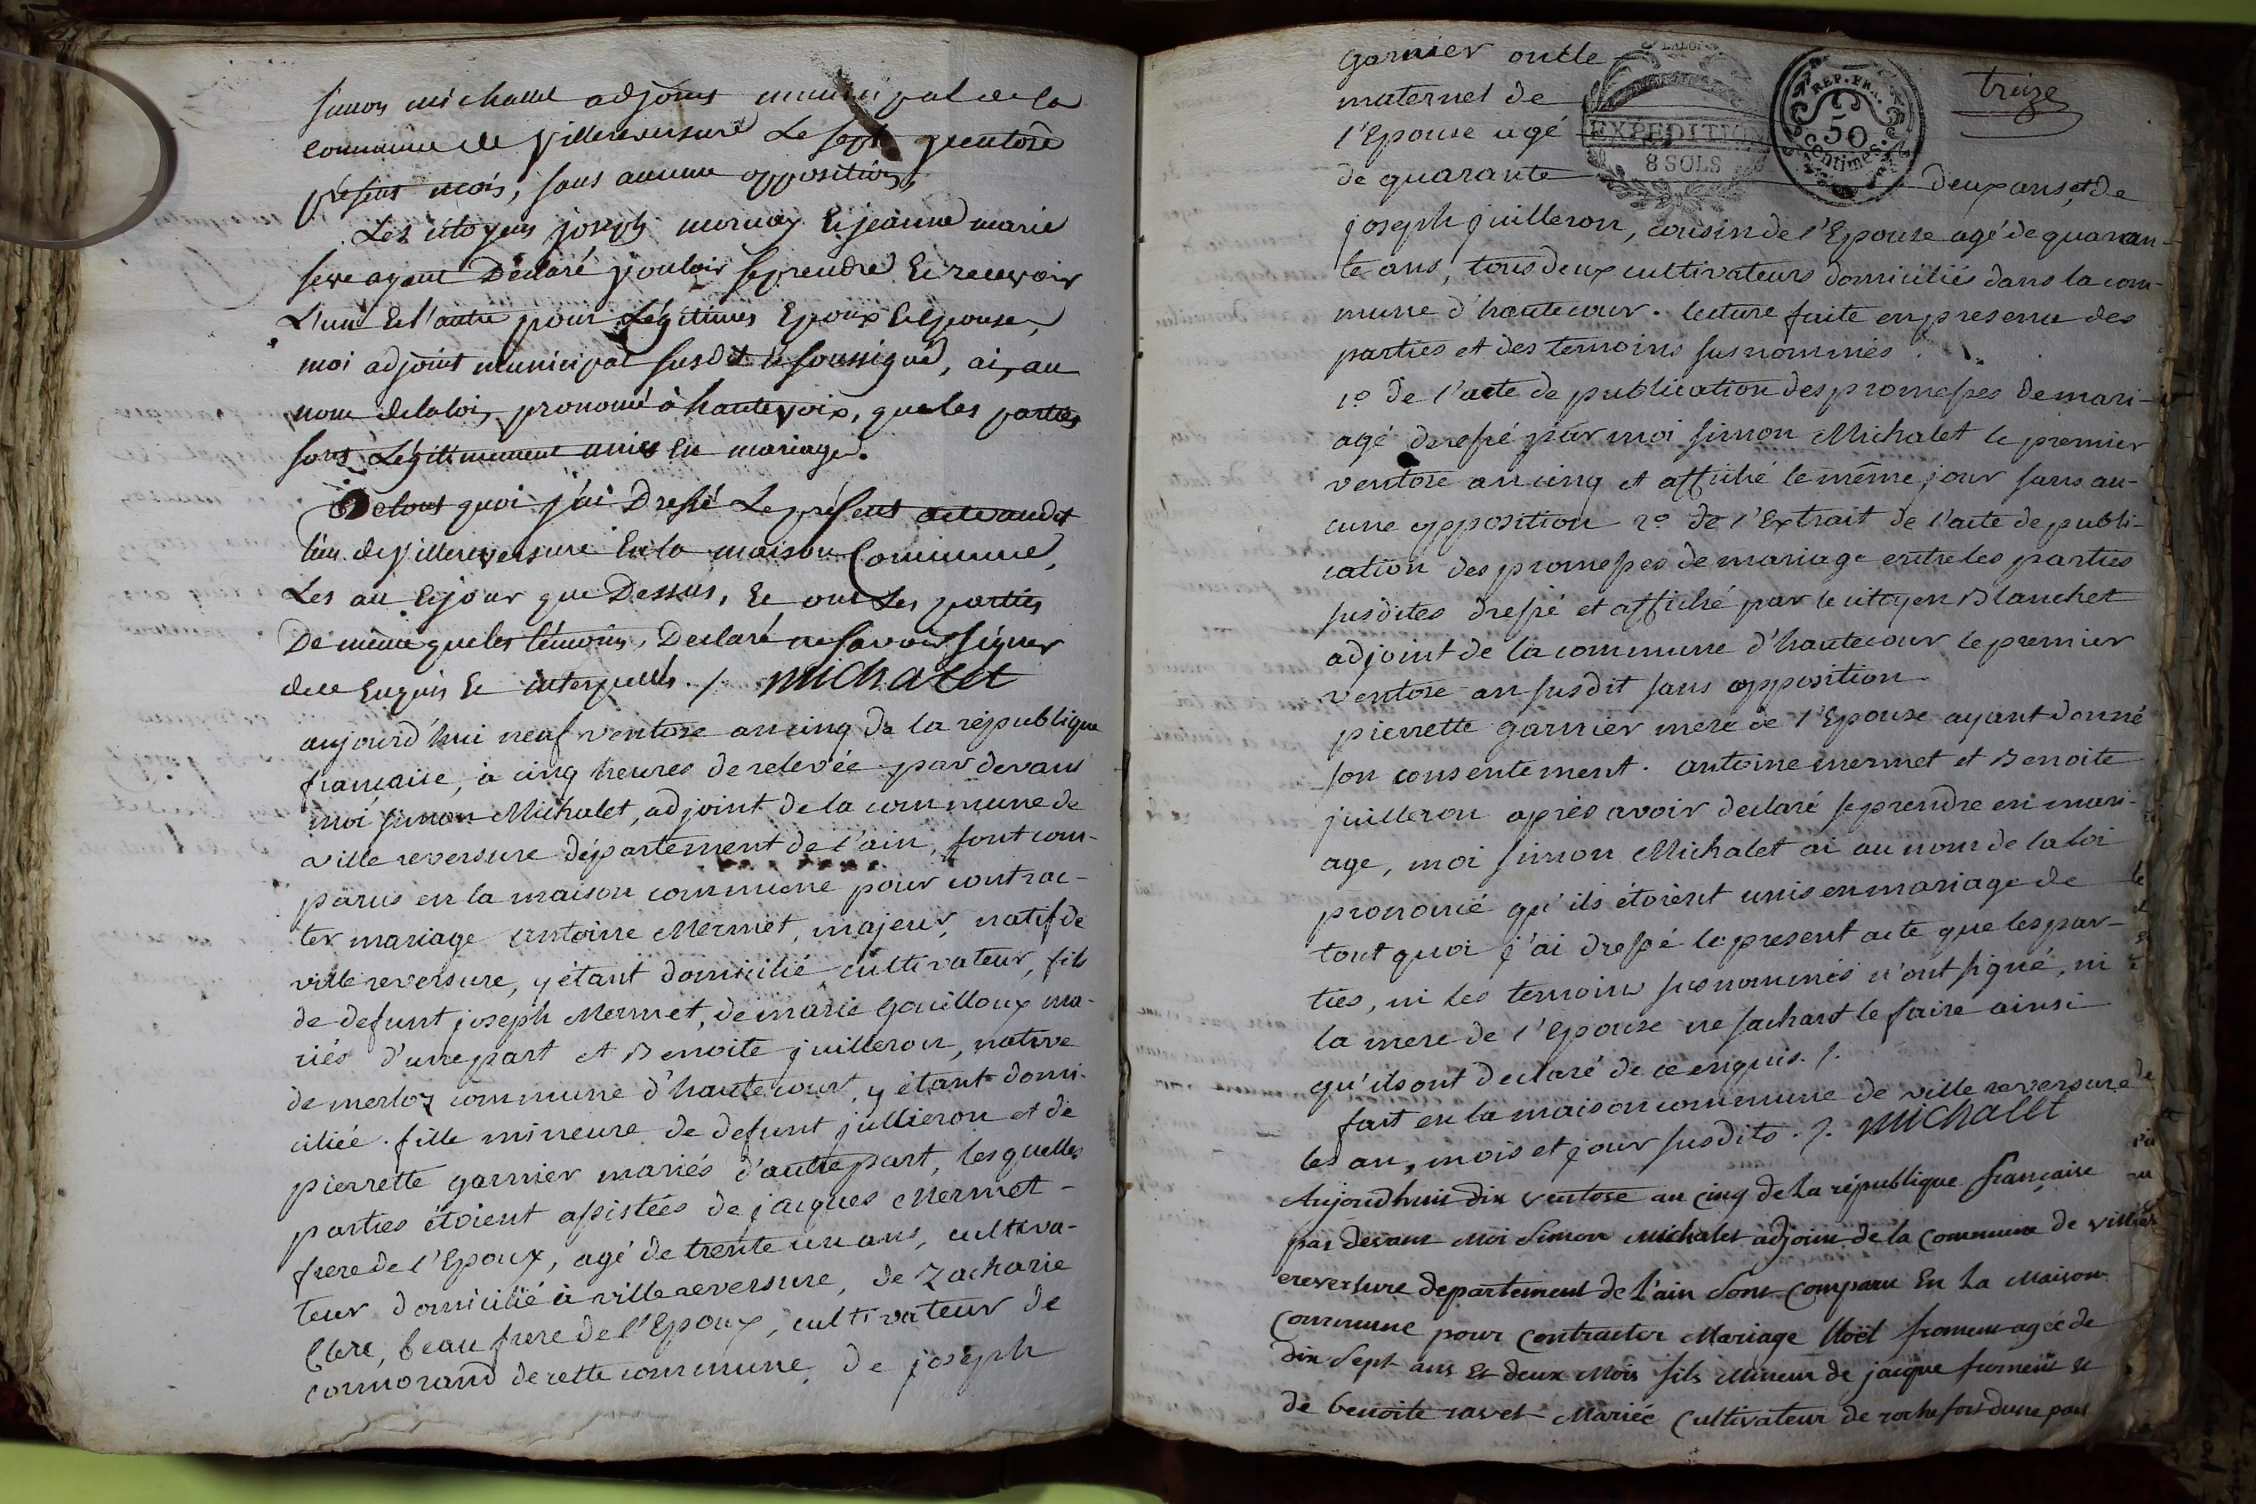 simon michallet adjoint municipal de la
commune de Villereversure Le sept ventose
présent mois, sans aucune opposition,
Les citoyens joseph mornay Et jeanne marie
seve ayant Déclaré vouloir se prendre Et recevoir
L'un Et l'autre pour Légitimes Epoux Et Epouse,
moi adjoint municipal susdit Et soussigné, ai, au
nom de la loi, prononcé à haute voix, que les parties
sont Légitimement unies En mariage.
De tout quoi j'ai Dressé Le présent acte audit
lieu de Villereversure En la maison Commune,
Les an Et jour que Dessus, Et ont Les parties
De même que les témoins, Declaré ne savoir signer
de ce Enquis Et interpellés ./. Michalet
aujourd'hui neuf ventose an cinq de la république
française, à cinq heures de relevée par devant
moi simon Michalet, adjoint de la commune de
ville reversure département de l'ain, sont com-
parus en la maison commune pour contrac-
ter mariage antoine Mermet, majeur, natif de
ville reversure, y étant domicilié, cultivateur, fils
de defunt joseph Mermet, de marie Gouilloux ma-
riés d'une part et Benoite juilleron, native
de merloz commune d'hautecour, y étant domi-
ciliée. fille mineure de defunt jullieron et de
pierrette garnier mariés d'autre part, lesquelles
parties étoient assistées de jacques Mermet
frere de l'Epoux, agé de trente un ans, cultiva-
teur domicilié à ville reversure, de Zacharie
beau frere de l'Epoux, cultivateur de
cormorand de cette commune, de joseph
treize
LALOI
EXPEDITION
8 SOLS
REP. FRA.
50
Centimes.
Garnier oncle
maternel de
l'Epouse agé
de quarante deux ans, et de
joseph juilleron, cousin de l'Epouse agé de quaran-
te ans, tous deux cultivateurs domiciliés dans la com-
mune d'hautecour. lecture faite en presence des
parties et des temoins susnommés
1º de l'acte de publication des promesses de mari-
age dressé par moi simon Michalet le premier
ventose an cinq et affiché le même jour sans au-
cune opposition 2º de l'Extrait de l'acte de publi-
cation des promesses de mariage entre les parties
susdites dressé et affiché par le citoyen Blanchet
adjoint de la commune d'hautecour le premier
ventose an susdit sans opposition.
pierrette garnier mere de l'Epouse ayant donné
son consentement. antoine mermet et Benoite
juilleron après avoir declaré se prendre en mari-
age, moi simon Michalet ai au nom de la loi
prononcé qu'ils étoient unis en mariage de
tout quoi j'ai dressé le present acte que les par-
ties, ni les temoins susnommés n'ont signé, ni
la mere de l'Epouse ne sachant le faire ainsi
qu'ils ont declaré de ce enquis ./.
fait en la maison commune de ville reversure
les an, mois et jour susdits ./. Michalet
Aujourdhuit dix ventose an cinq de la république française
par devant Moi Simon Michalet adjoint de la Commune de viller
ereversure departement de l'ain sont Comparu En la Maison
Commune pour Contracter Mariage Noël froment agée de
dix Sept ans Et deux Mois fils Mineur de jacque froment et
de benoite ravet Mariée Cultivateur de rochefort dune part